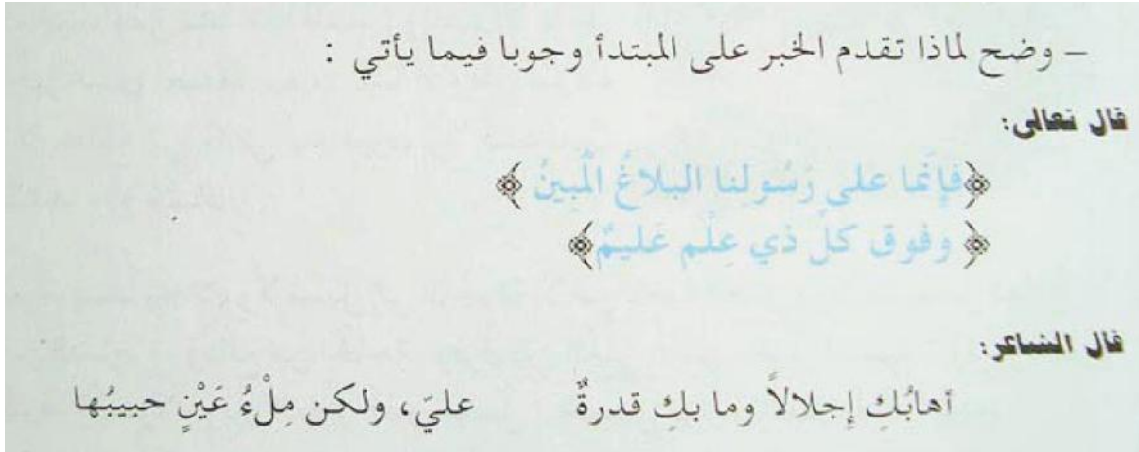 – وضح لماذا تقدم الخبر على المبتدأ وجوبا فيما يأتي :
قال تعالى:
﴿فإنَّما على رَسُولِنا البلاغُ الْمبِينُ﴾
﴿وفوق كلِّ ذي عِلْم عَليمٌ﴾
قال الشاعر:
أهابُكِ إِجلالاً وما بكِ قدرةٌ عليَّ، ولكن مِلْءُ عَيْنٍ حبيبُها